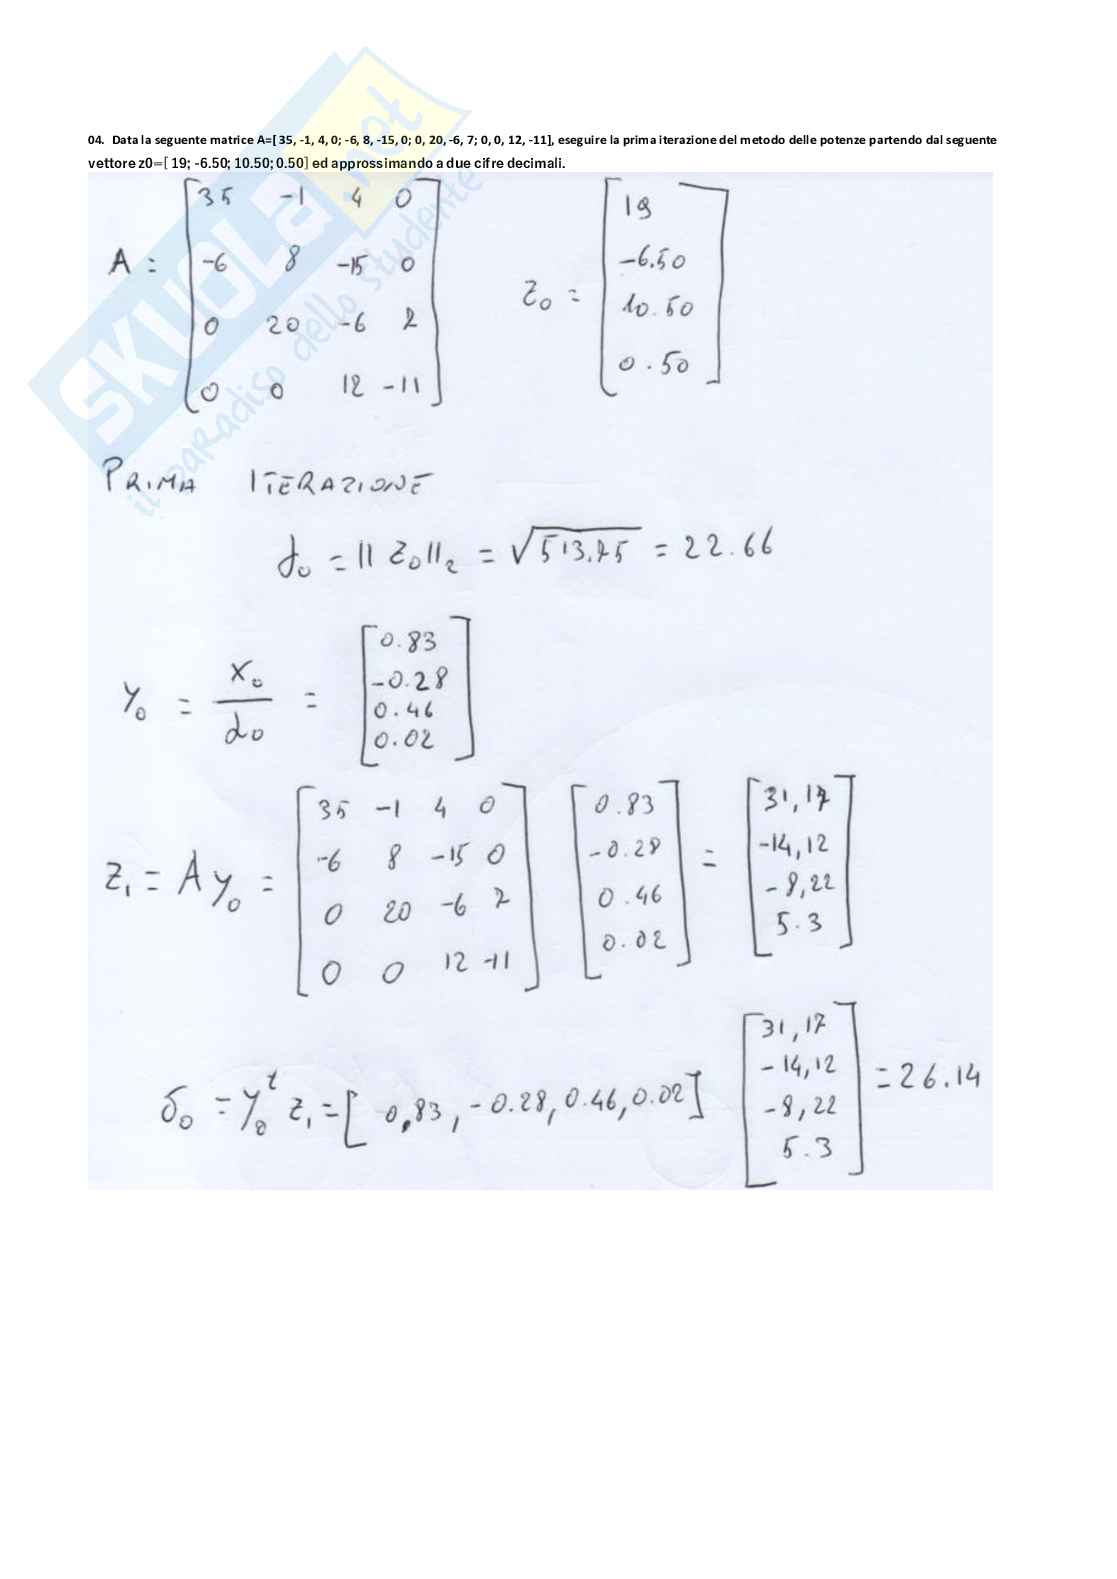 04. Data la seguente matrice A=[ 35, -1, 4, 0; -6, 8, -15, 0; 0, 20, -6, 7; 0, 0, 12, -11], eseguire la prima iterazione del metodo delle potenze partendo dal seguente
vettore z0=[ 19; -6.50; 10.50; 0.50] ed approssimando a due cifre decimali.
SKUOLA.net
il paradiso dello studente
A = [35 -1 4 0
-6 8 -15 0
0 20 -6 7
0 0 12 -11]
z0 = [19
-6.50
10.50
0.50]
PRIMA ITERAZIONE
d0 = || z0 ||2 = √513.75 = 22.66
y0 = x0 / d0 = [0.83
-0.28
0.46
0.02]
z1 = A y0 = [35 -1 4 0
-6 8 -15 0
0 20 -6 7
0 0 12 -11]
[0.83
-0.28
0.46
0.02]
= [31,17
-14,12
-8,22
5.3]
σ0 = y0^t z1 = [ 0,83, -0.28, 0.46, 0.02]
[31,17
-14,12
-8,22
5.3]
= 26.14